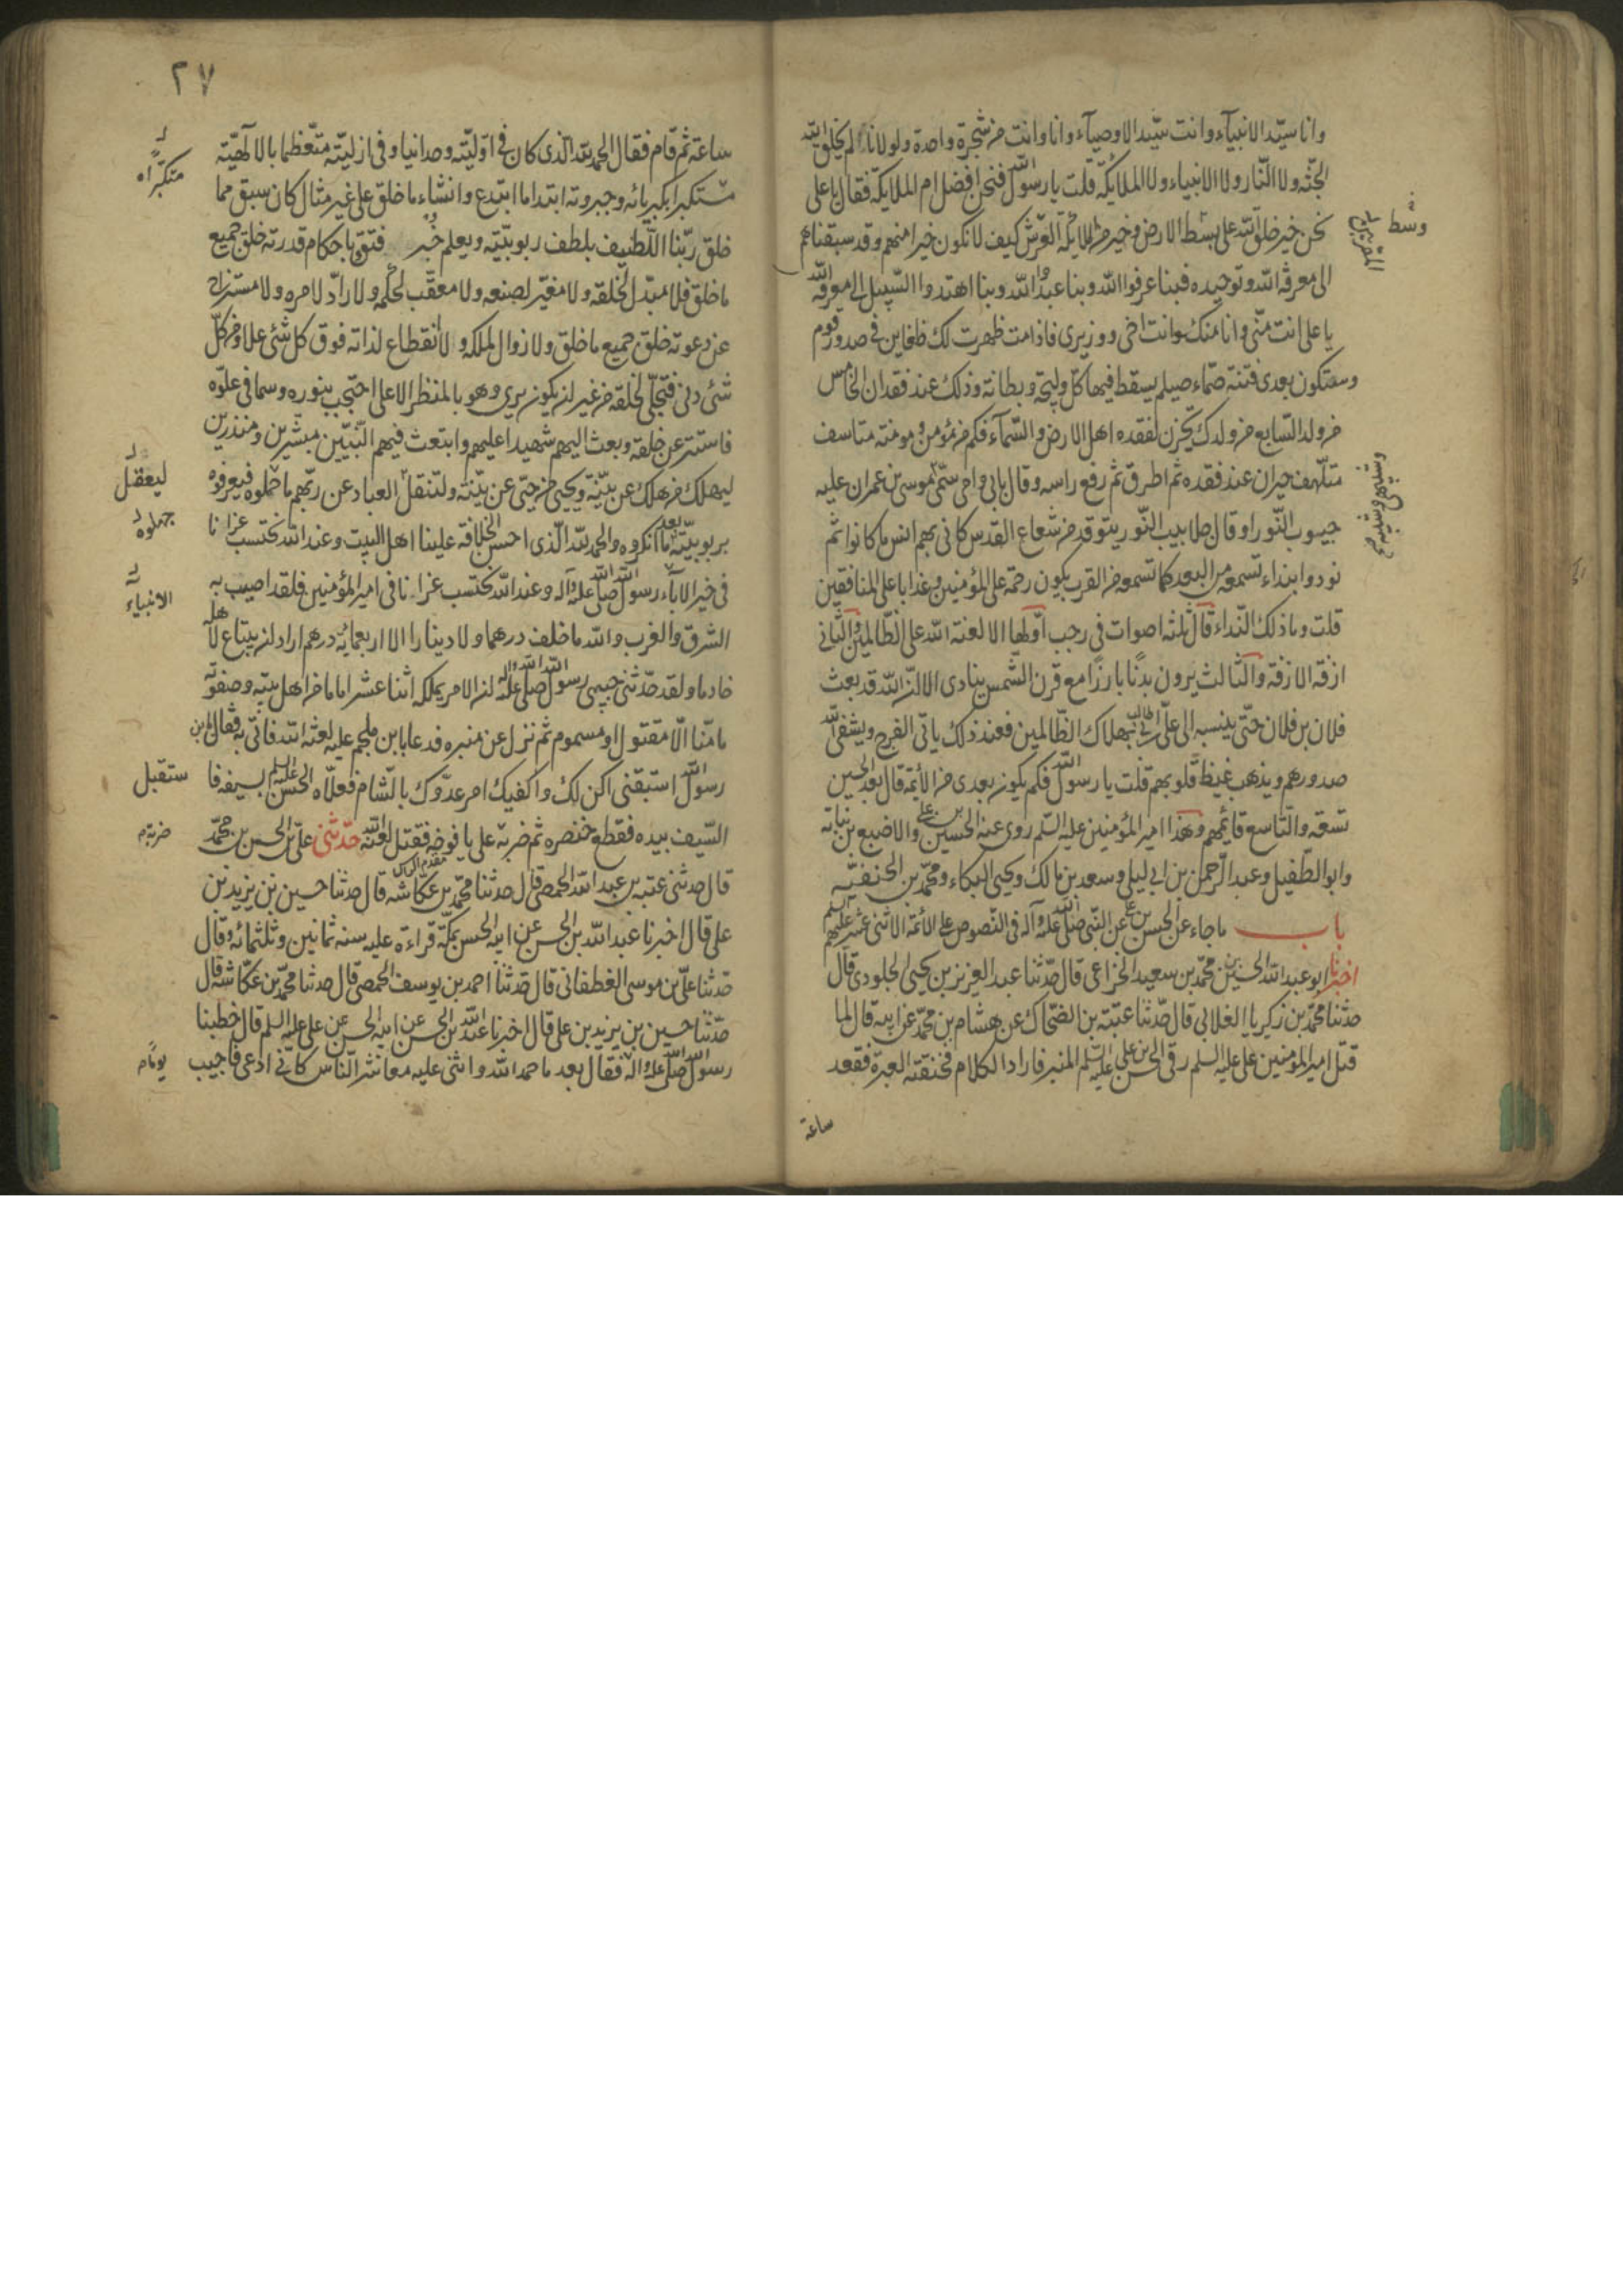 وانا سيّد الانبيآء وانت سيّد الاوصيآء وانا وانت من شجرة واحدة ولولانا لم يخلق الله
الجنّة ولا النّار ولا الانبياء ولا الملائكة قلت يا رسول الله فنحن افضل ام الملائكة فقال يا على
نحن خير خلق الله على بسط الارض وخير من الملائكة العرش كيف لا نكون خيرا منهم وقد سبقناهم
الى معرفة الله وتوحيده فبنا عرفوا الله وبنا عبدوا الله وبنا اهتدوا السّبيل الى معرفة الله
يا على انت منّى وانا منك وانت اخى ووزيرى فاذا مت ظهرت لك ضغاين فى صدور قوم
وستكون بعدى فتنة صمّاء صيلم يسقط فيها كلّ وليجة وبطانة وذلك عند فقدان الخامس
من ولد السّابع من ولدك يحزن لفقده اهل الارض والسّمآء فكم من مؤمن ومومنة متاسف
متلهّف حيران عند فقده ثم اطرق ثم رفع راسه وقال بابى وامى سمّى موسى بن عمران عليه
جيوب النّور او قال جلابيب النّور يتوقد من شعاع القدس كانى بهم انس ما كانوا ثم
نودوا بنداء تسمعه من البعد كما تسمعه من القرب يكون رحمة على المؤمنين وعذابا على المنافقين
قلت وما ذلك النّداء قال ثلثة اصوات فى رجب اوّلها الا لعنة الله على الظّالمين والثّانى
ازفة الازفة والثّالث يرون بدنًا بارزًا مع قرن الشّمس ينادى الا انّ الله قد بعث
فلان بن فلان حتّى ينسبه الى علىّ بن ابى طالب بهلاك الظّالمين فعند ذلك ياتى الفرج ويشفى الله
صدورهم ويذهب غيظ قلوبهم قلت يا رسول الله فكم يكون بعدى من الأئمة قال بعد الحسين
تسعة والتّاسع قائمهم وهذا امير المؤمنين عليه السّلم روى عنه الحسين بن على والاصبغ بن نباتة
وابو الطّفيل وعبد الرّحمن بن ابى ليلى وسعد بن مالك ويحيى البكاء ومحمّد بن الحنفيّة
باب ما جاء عن الحسن بن على عن النّبى صلى الله عليه وآله فى النّصوص على الأئمة الاثنى عشر عليهم السلم
اخبرنا ابو عبد الله الحسين بن محمّد بن سعيد الخزاعى قال حدّثنا عبد العزيز بن يحيى الجلودى قال
حدثنا محمّد بن زكريا الغلابى قال حدّثنا عتبة بن الضحّاك عن هشام بن محمّد عن ابيه قال لما
قتل امير المؤمنين على عليه السلم رقى الحسن بن على عليه السّلم المنبر فاراد الكلام فخنقته العبرة فقعد
ساعة
وسّط
٢٧
ساعة ثم قام فقال الحمد لله الذى كان فى اوّليّته وحدانيا وفى ازليّته متعّظما بالالٰهيّة
متكبّرا
متكبرا بكبريائه وجبروته ابتدا ما ابتدع وانشاء ما خلق على غير مثال كان سبق مما
خلق ربّنا اللّطيف بلطف ربوبيّته وبعلم خبره فتق باحكام قدرته خلق جميع
ما خلق فلا مبدّل لخلقه ولا مغيّر لصنعه ولا معقّب لحكمه ولا رادّ لامره ولا مستزاح
عن دعوته خلق جميع ما خلق ولا زوال لملكه ولا انقطاع لذاته فوق كلّ شئ علا ومن كلّ
شئ دنى فتجلّى لخلقه من غير ان يكون يرى وهو بالمنظر الاعلى احتجب بنوره وسما فى علوّه
فاستتر عن خلقه وبعث اليهم شهيدا عليهم وابتعث فيهم النّبيّين مبشرين ومنذرين
ليعقل
ليهلك من هلك عن بيّنة ويحيى من حيّى عن بيّنة ولتنقل العباد عن ربّهم ما جهلوه فيعرفوه
جهلوه
بربوبيّته بعد ما انكروه والحمد لله الّذى احسن الخلافة علينا اهل البيت وعند الله نحتسب عزانا
الانبياء
فى خير الاباء رسول الله صلى الله عليه وآله وعند الله نحتسب عزانا فى امير المؤمنين فلقد اصيب به
الشرق والغرب والله ما خلف درهما ولا دينارا الا اربعمائة درهم اراد ان يبتاع لاهله
خادما ولقد حدّثنى حبيبى رسول الله صلى الله عليه وآله ان الامر يملكه اثنا عشر اماما من اهل بيته وصفوته
ما منّا الّا مقتول او مسموم ثم نزل عن منبره فدعا بابن ملجم عليه لعنة الله فاتى به فقال يابن
رسول الله استبقنى اكن لك واكفيك امر عدوّك بالشام فعلاه الحسن عليه السلم بسيفه فا
ستقبل
السّيف بيده فقطع خنصره ثم ضربه على يافوخه فقتل لعنه الله حدّثنى علىّ بن الحسن بن محمّد
ضربة
قال حدثنى عتبة بن عبد الله الحمصى قال حدثنا محمّد بن عكاشة قال حدثنا حسين بن يزيد بن
على قال اخبرنا عبد الله بن الحسن عن ابيه الحسن بمكّة قراءة عليه سنه ثمانين وثلثمائة وقال
حدّثنا علىّ بن موسى الغطفانى قال حدّثنا احمد بن يوسف الحمصى قال حدثنا محمّد بن عكّاشة قال
حدّثنا حسين بن يزيد بن على قال اخبرنا عبد الله بن الحسن عن ابيه الحسن عن على عليه السلم قال خطبنا
رسول الله صلى الله عليه وآله فقال بعد ما حمد الله واثنى عليه معاشر النّاس كانّى ادعى فاجيب
يومًا